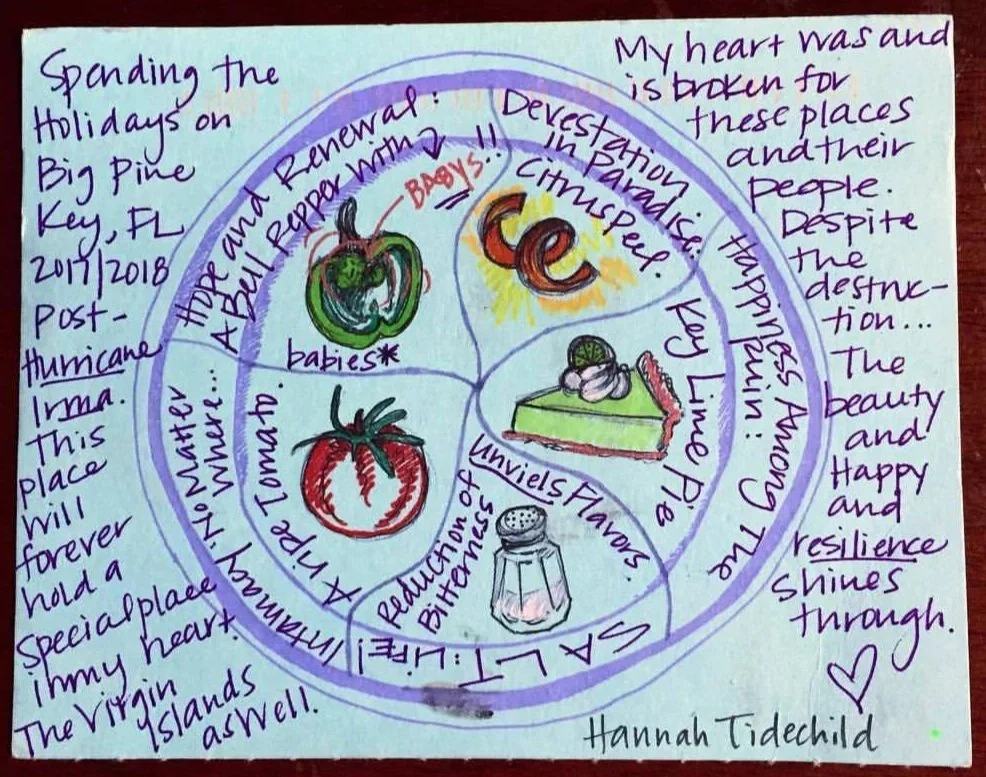 Spending the
Holidays on
Big Pine
Key, FL
2017/2018
Post-
Hurricane
Irma.
This
place
will
forever
hold a
special place
in my heart.
The Virgin
Islands
as well.
Hope and Renewal:
A Bell Pepper with
BABYS!!
babies*
Devestation
in Paradise:
Citrus Peel.
Happiness Among The
Ruin:
Key Lime Pie
SALT: LIFE!
Unviels Flavors.
Reduction of
Bitterness
Intamacy No Matter
Where...
A ripe Tomato.
My heart was and
is broken for
these places
and their
people.
Despite
the
destruc-
tion...
The
beauty
and
Happy
and
resilience
shines
through.
Hannah Tidechild